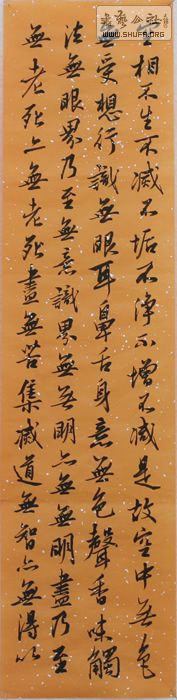 空相不生不滅不垢不淨不增不減是故空中無色
無受想行識無眼耳鼻舌身意無色聲香味觸
法無眼界乃至無意識界無無明亦無無明盡乃至
無老死亦無老死盡無苦集滅道無智亦無得以
書藝公社
WWW.SHUFA.ORG